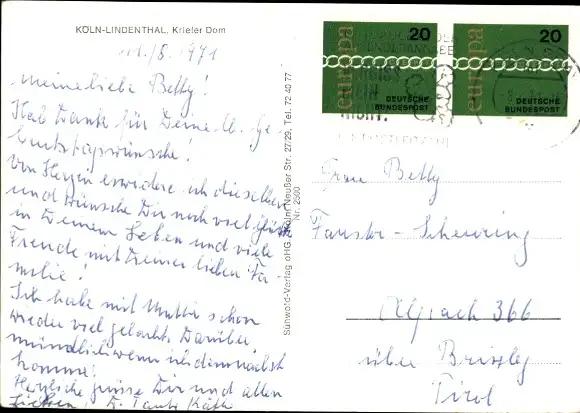 KÖLN-LINDENTHAL, Krieler Dom
1971
meine liebe Betty!
Hab Dank für Deine lb. Ge
burtstagswünsche!
Von Herzen erwidere ich dieselben
und wünsche Dir noch viel Glück
in Deinem Leben und viele
Freude mit Deiner lieben Fa
milie!
Ich habe mit Mutter schon
wieder viel gelacht. Darüber
mündlich wenn ich demnächst
komme!
Herzliche Grüsse Dir und allen
Lieben, D. Tante Käthe
Sünwold-Verlag oHG., Köln, Neußer Str. 27/29, Tel. 72 40 77
Nr. 2900
europa
20
DEUTSCHE
BUNDESPOST
europa
20
DEUTSCHE
BUNDESPOST
Frau Betty
366
über Brixlegg
Tirol